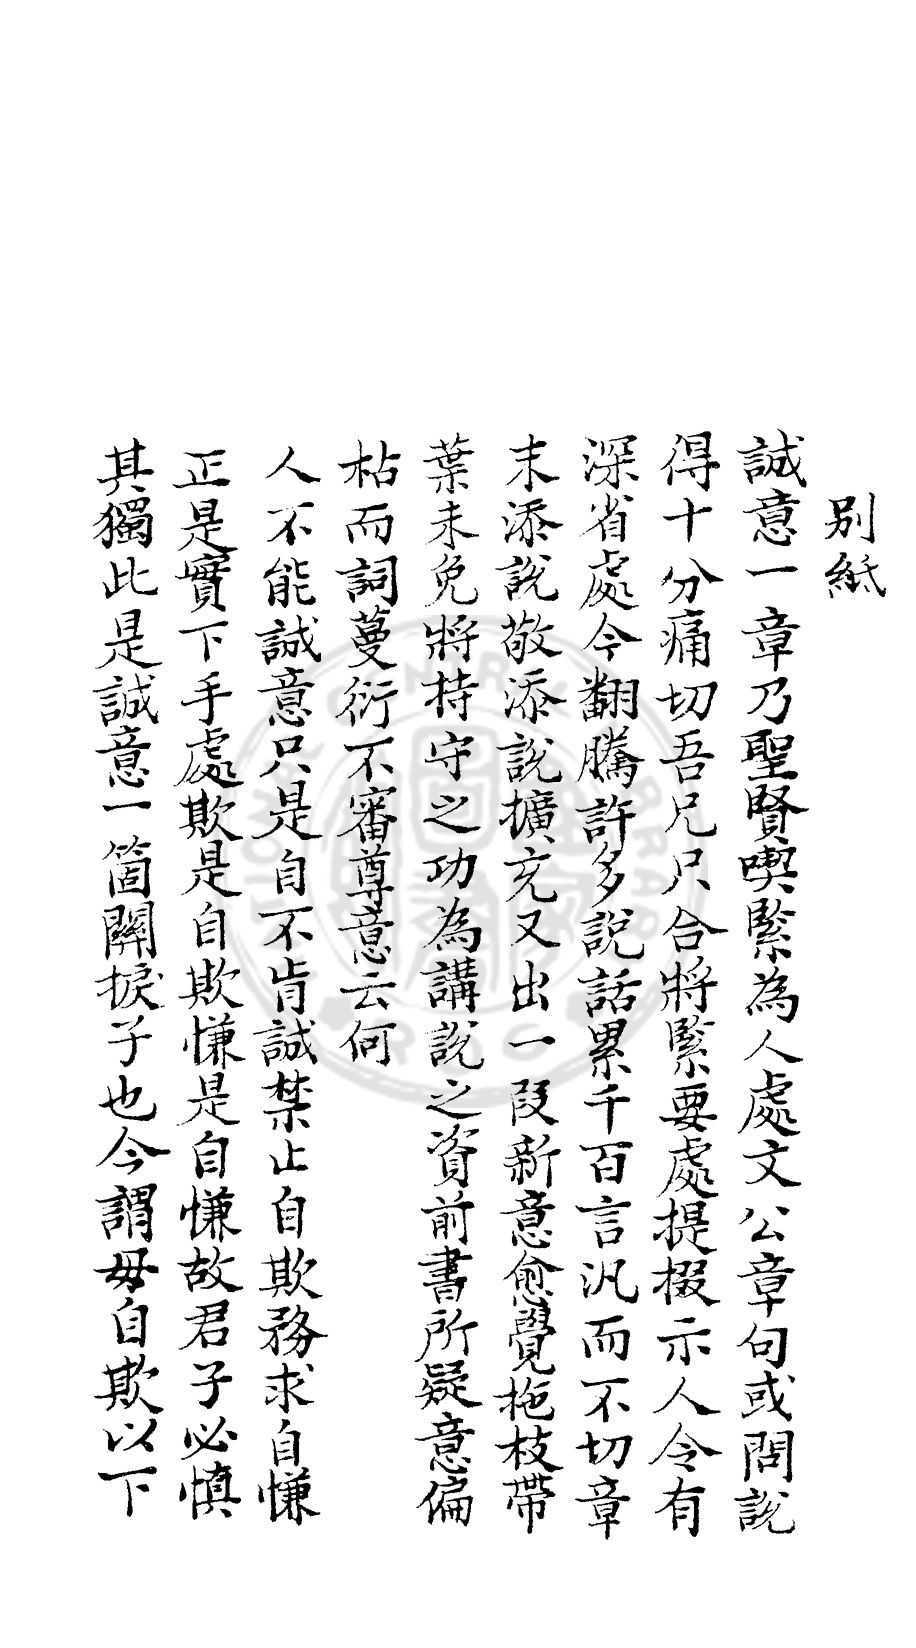 別紙
誠意一章乃聖賢喫緊為人處文公章句或問説
得十分痛切吾兄只合將緊要處提掇示人令有
深省處今翻騰許多説話累千百言汎而不切章
末添說敬添說擴充又出一段新意愈覺拖枝帶
葉未免將持守之功為講說之資前書所疑意偏
枯而詞蔓衍不審尊意云何
人不能誠意只是自不肯誠禁止自欺務求自慊
正是實下手處欺是自欺慊是自慊故君子必慎
其獨此是誠意一箇關捩子也今謂毋自欺以下